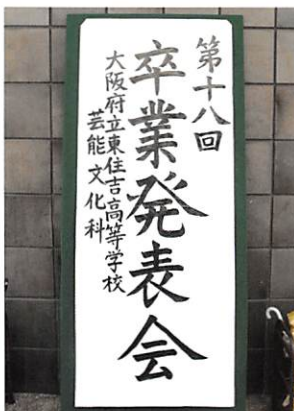 第十八回
卒業発表会
大阪府立東住吉高等学校
芸能文化科